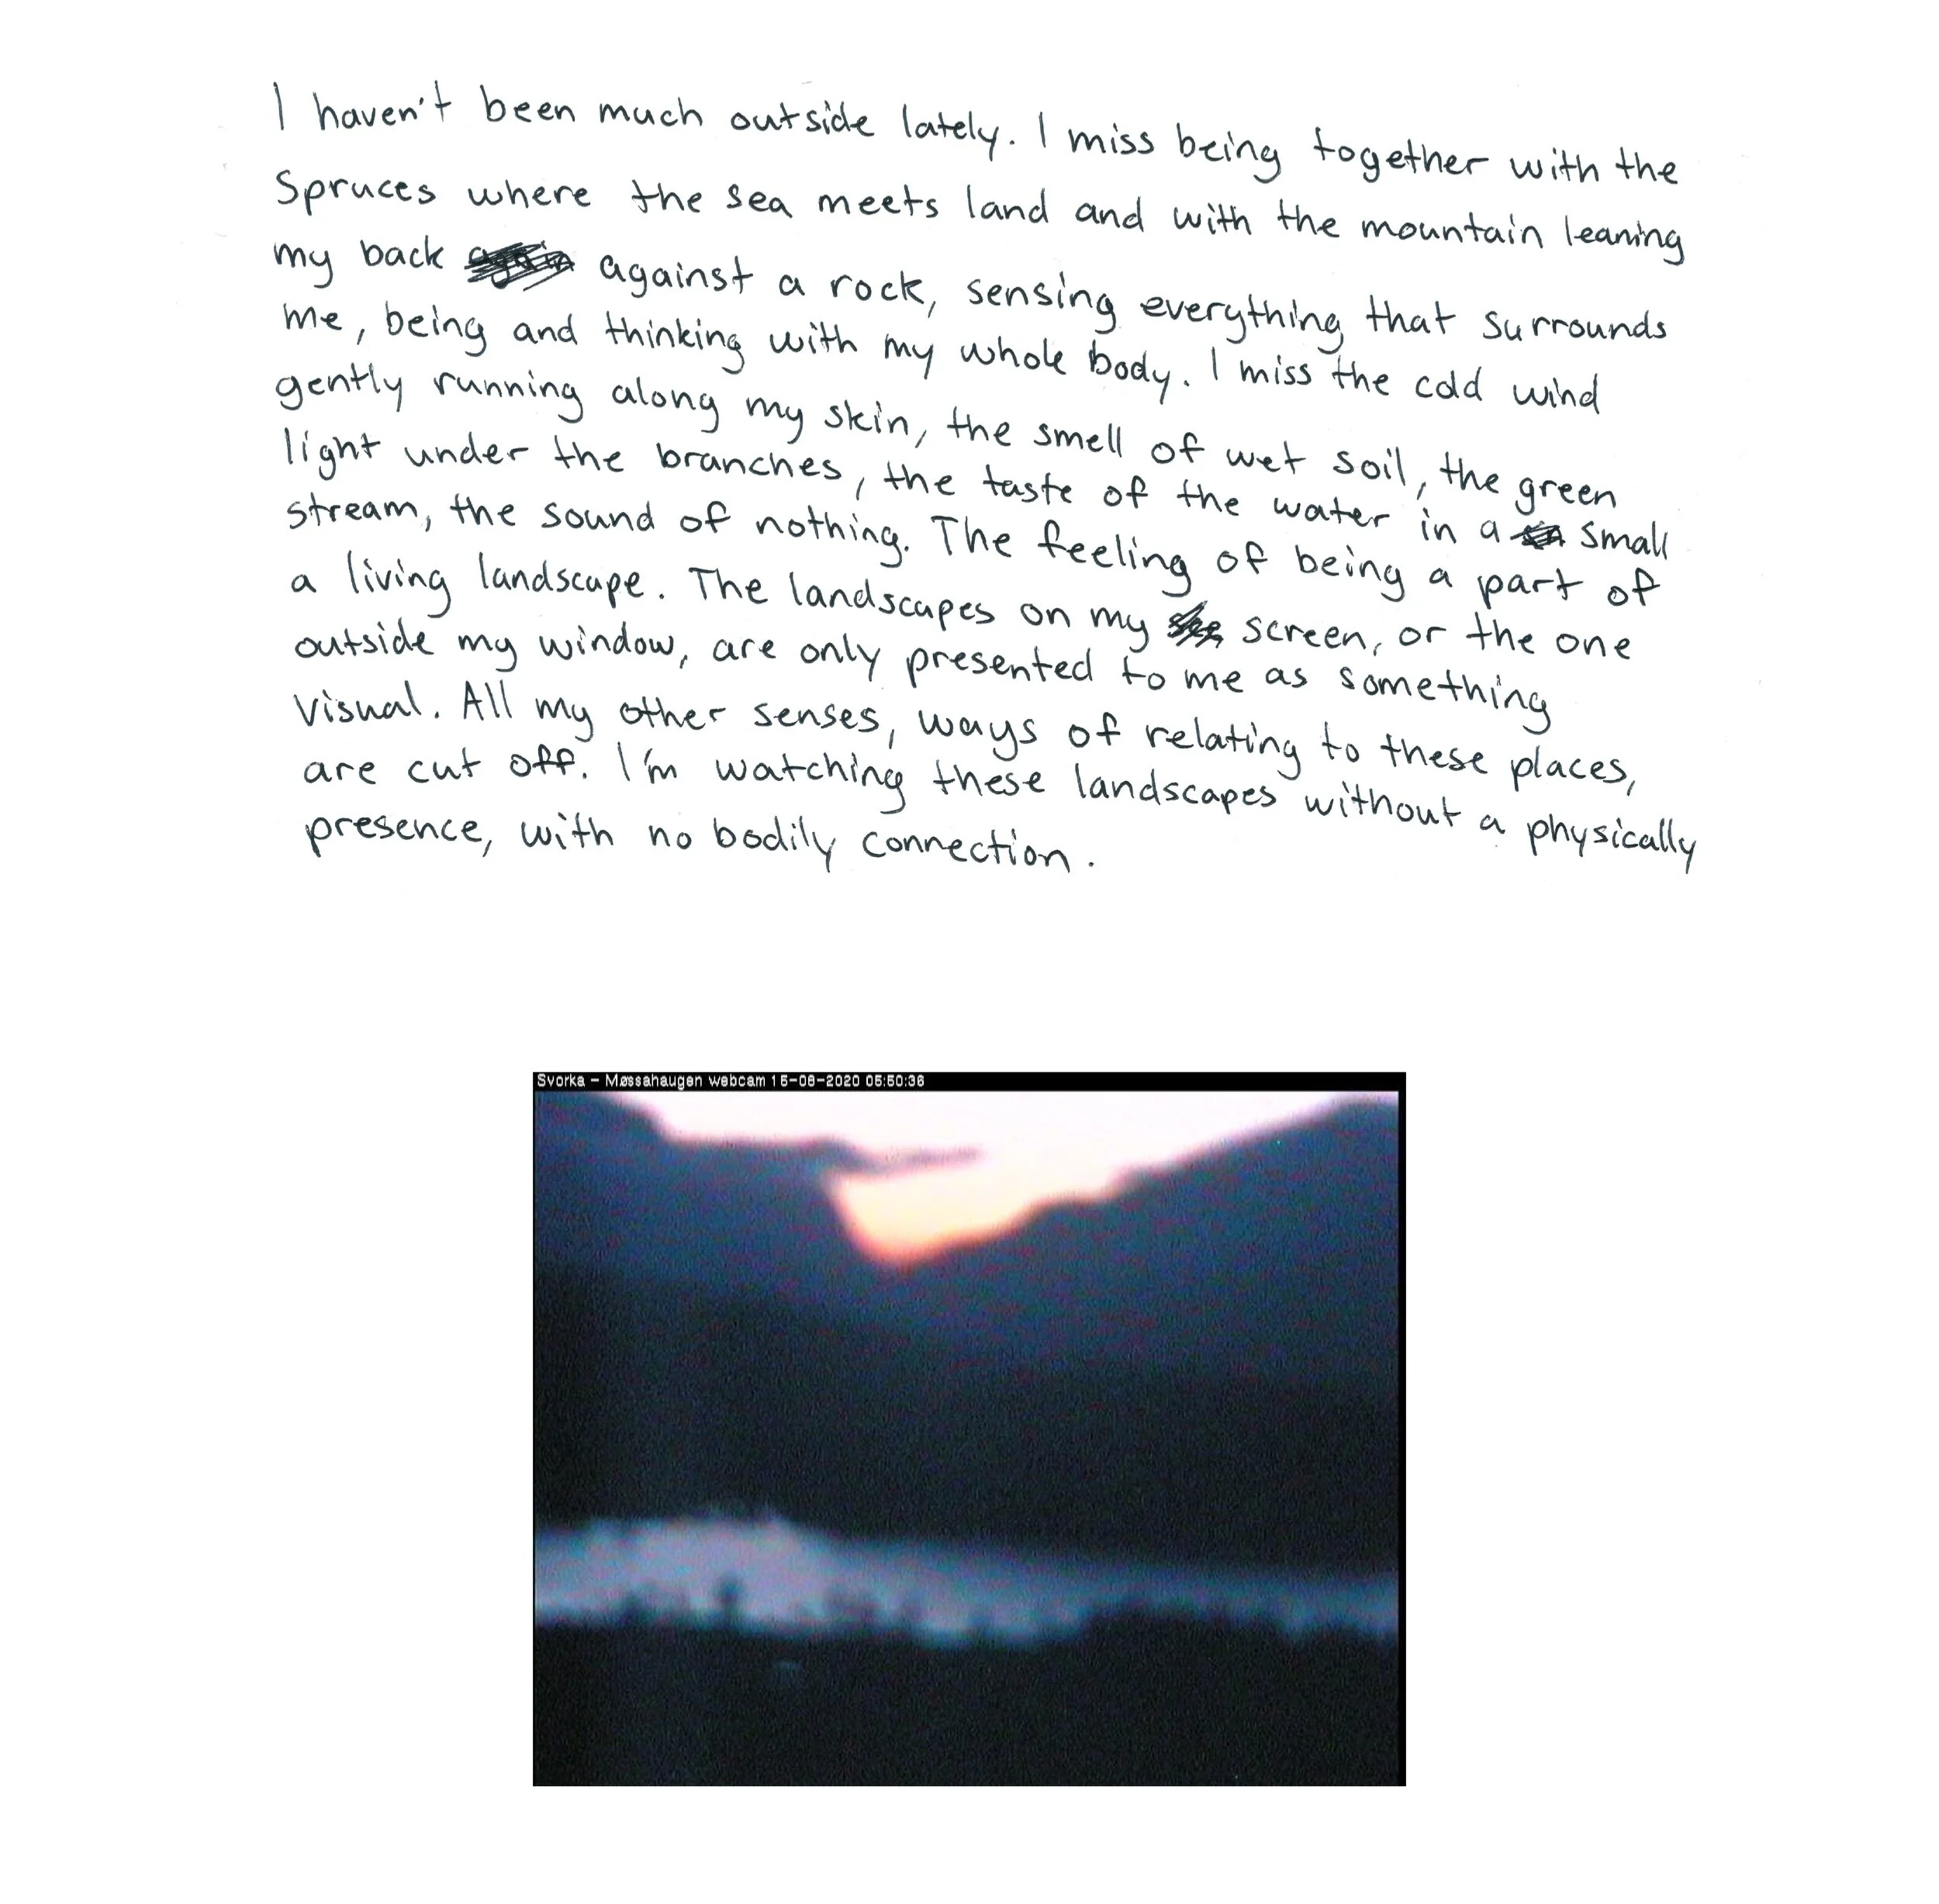 I haven't been much outside lately. I miss being together with the
Spruces where the sea meets land and with the mountain leaning
my back against a rock, sensing everything that surrounds
me, being and thinking with my whole body. I miss the cold wind
gently running along my skin, the smell of wet soil, the green
light under the branches, the taste of the water in a small
stream, the sound of nothing. The feeling of being a part of
a living landscape. The landscapes on my screen, or the one
outside my window, are only presented to me as something
visual. All my other senses, ways of relating to these places,
are cut off. I'm watching these landscapes without a physically
presence, with no bodily connection.
Svorka - Møssahaugen webcam 15-08-2020 05:50:36